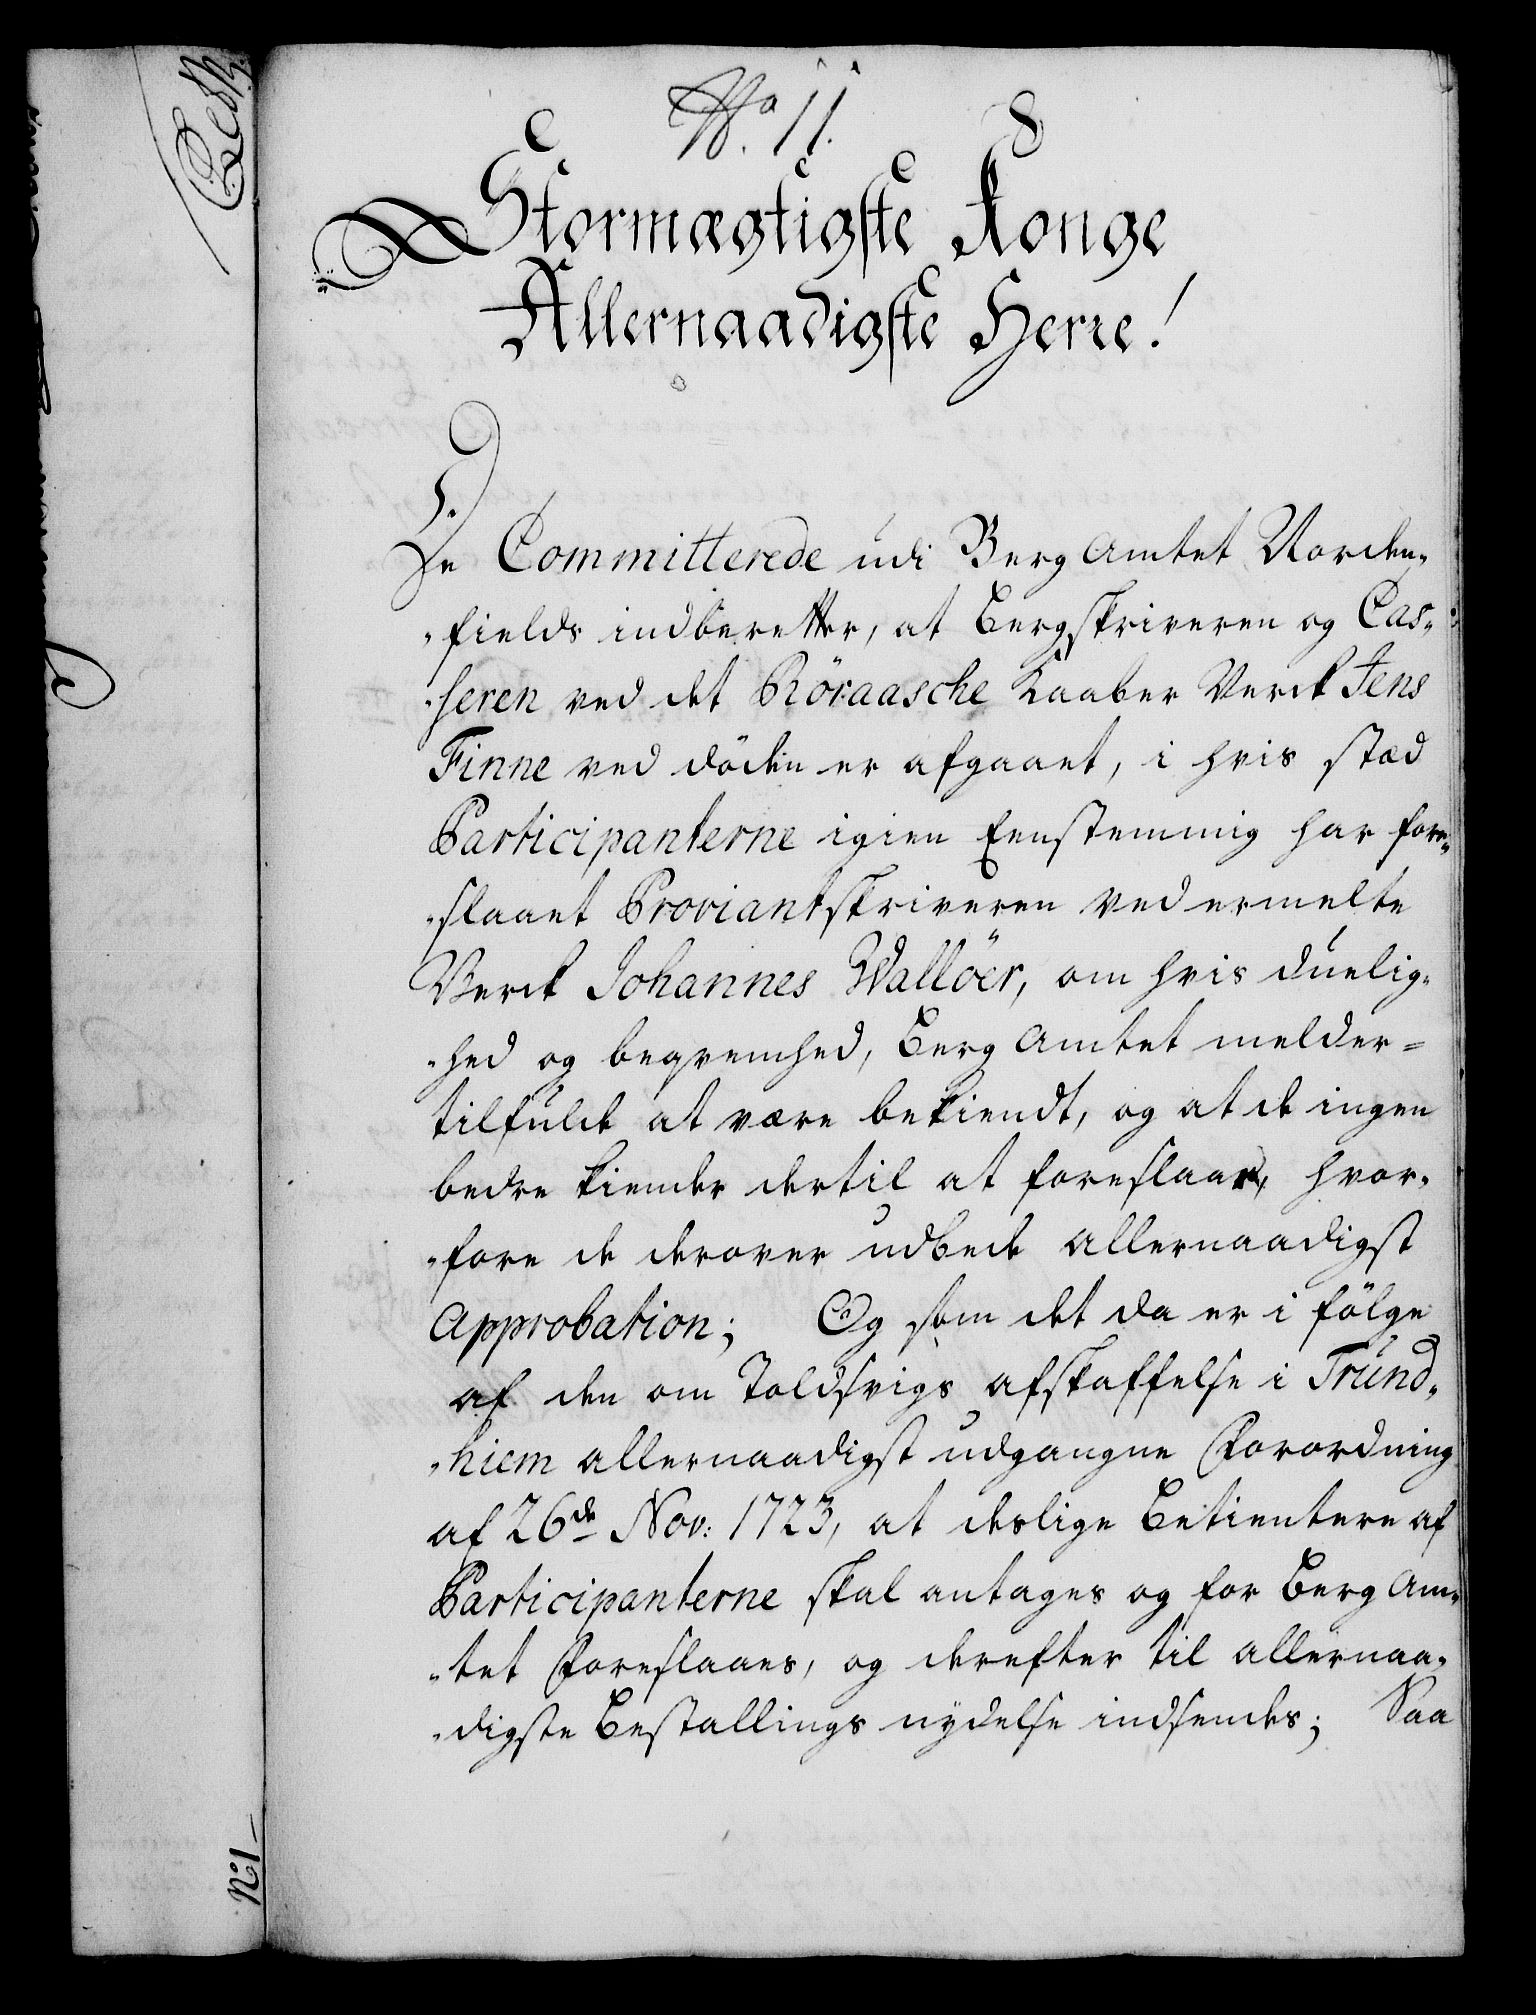 No 11.
Stormægtigste Konge
Allernaadigste Herre!
De Committerede udi Berg Amtet Norden-
-fields indberetter, at Bergskriveren og Cas-
-seren ved det Röraasche Kaaber Verck Jens
Finne ved döden er afgaaet, i hvis stæd
Participanterne igien Eenstemmig har fore-
-slaaet Proviantskriveren ved ermelte
Verck Johannes Wallöer, om hvis duelig-
-hed og beqvemhed, Berg Amtet melder
tilfulde at være bekiendt, og at de ingen
bedre kiender dertil at foreslaae, hvor-
-fore de derover udbede allernaadigst
Approbation; Og som det da er i fölge
af den om Toldsvigs afskaffelse i Trund-
-hiem allernaadigst udgangne Forordning
af 26de Nov: 1723, at deslige Betientere af
Participanterne skal antages og for Berg Am-
-tet Foreslaaes, og derefter til allernaa-
-digste Bestallings nydelse indsendes; Saa
No 1